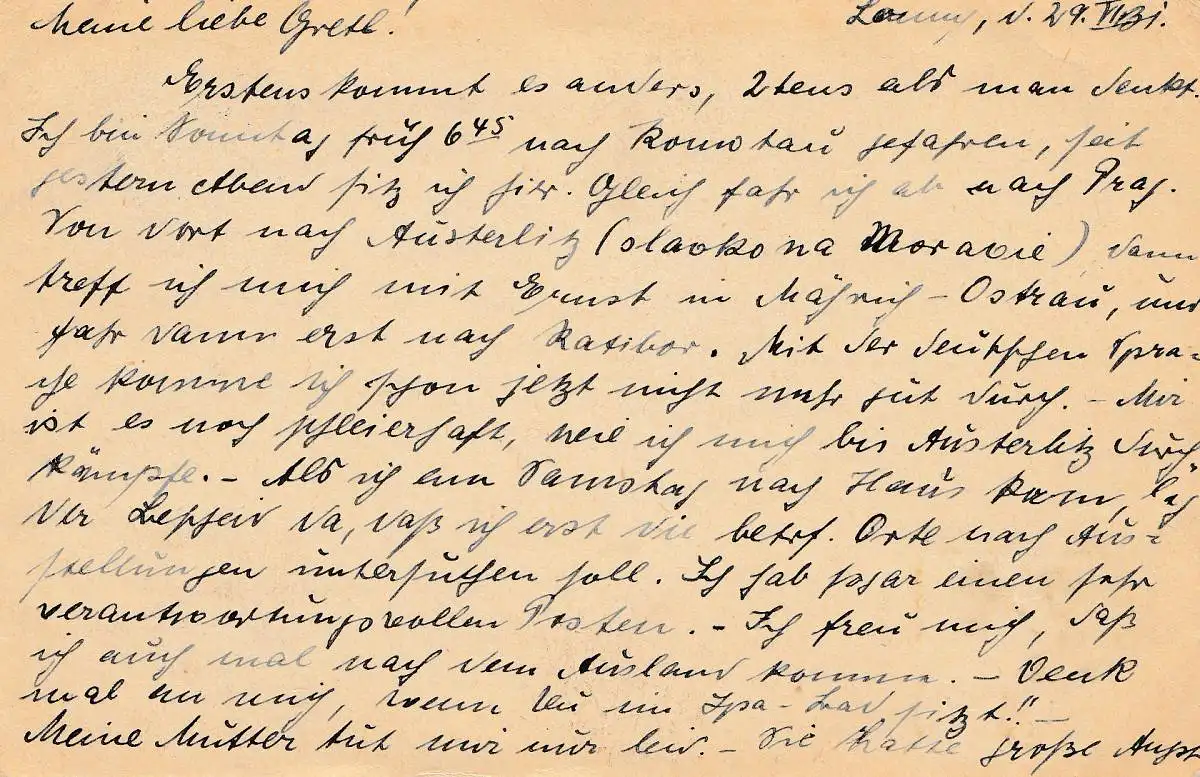 Meine liebe Gretl! Louny, d. 29. VI. 31.
Erstens kommt es anders, 2tens als man denkt.
Ich bin Sonntag früh 6 45 nach Komotau gefahren, seit
gestern Abend sitz ich hier. Gleich fahr ich ab nach Prag.
Von dort nach Austerlitz (slavko na Moravie) dann
treff ich mich mit Ernst in Mährisch-Ostrau, und
fahr dann erst nach Ratibor. Mit der deutschen Spra-
che komme ich schon jetzt nicht mehr gut durch. - Mir
ist es noch schleierhaft, wie ich mich bis Austerlitz durch
kämpfe. - Als ich am Samstag nach Haus kam, lag
der Bescheid da, daß ich erst die betrf. Orte nach Aus-
stellungen untersuchen soll. Ich hab sogar einen sehr
verantwortungsvollen Posten. - Ich freu mich, daß
ich auch mal nach dem Ausland komme. - Denk
mal an mich, wenn Du im Isa-Bad sitzt!! -
Meine Mutter tut mir nur leid. - Sie hatte große Angst